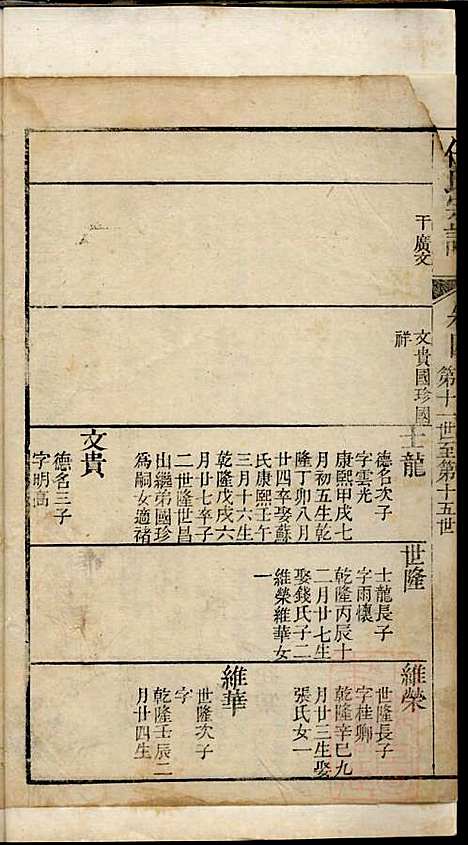 氏宗譜
第十一世至第十五世
干廣文
文貴國珍國
祥
士龍
德名次子
字雲光
康熙甲戌七
月初五生乾
隆丁卯八月
廿四卒娶蘇
氏康熙壬午
三月十六生
乾隆戊戌六
月廿七卒子
二世隆世昌
出繼弟國珍
為嗣女適褚
文貴
德名三子
字明高
世隆
士龍長子
字雨懷
乾隆丙辰十
二月廿七生
娶錢氏子二
維榮維華女
一
維榮
世隆長子
字桂卿
乾隆辛巳九
月廿三生娶
張氏女一
維華
世隆次子
字
乾隆壬辰二
月廿四生